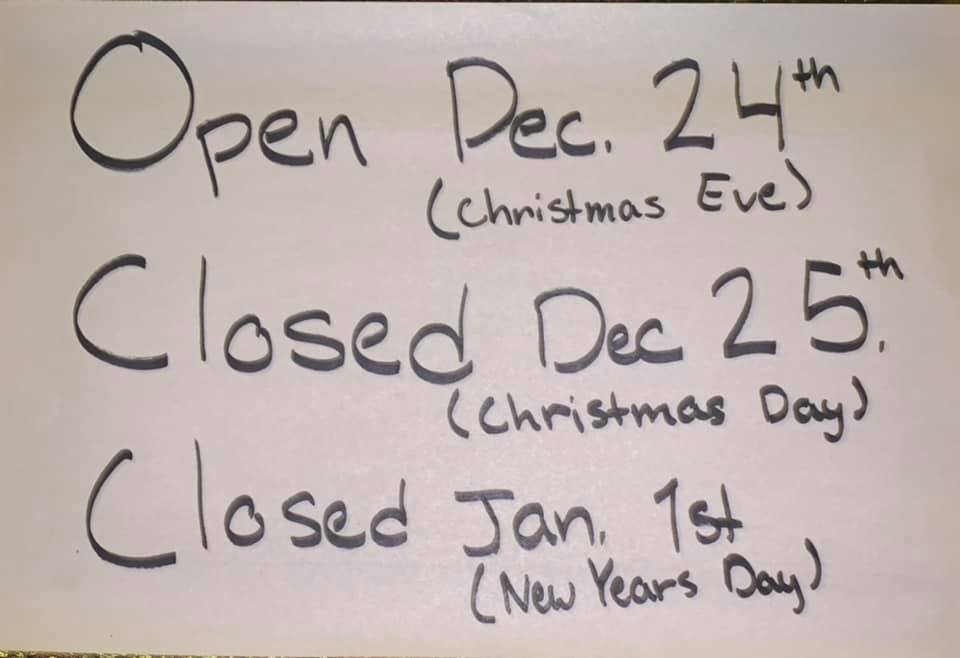 Open Dec. 24th
(Christmas Eve)
Closed Dec 25th.
(Christmas Day)
Closed Jan. 1st
(New Years Day)